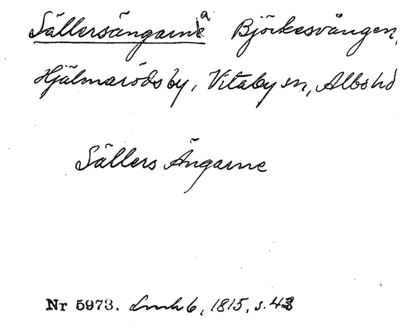 Sällersängarna Björkesvången,
Hjälmaröds by, Vitaby sn, Albo hd
Sällers Ängarne
Nr 5973. Lmh 6, 1815, s. 43